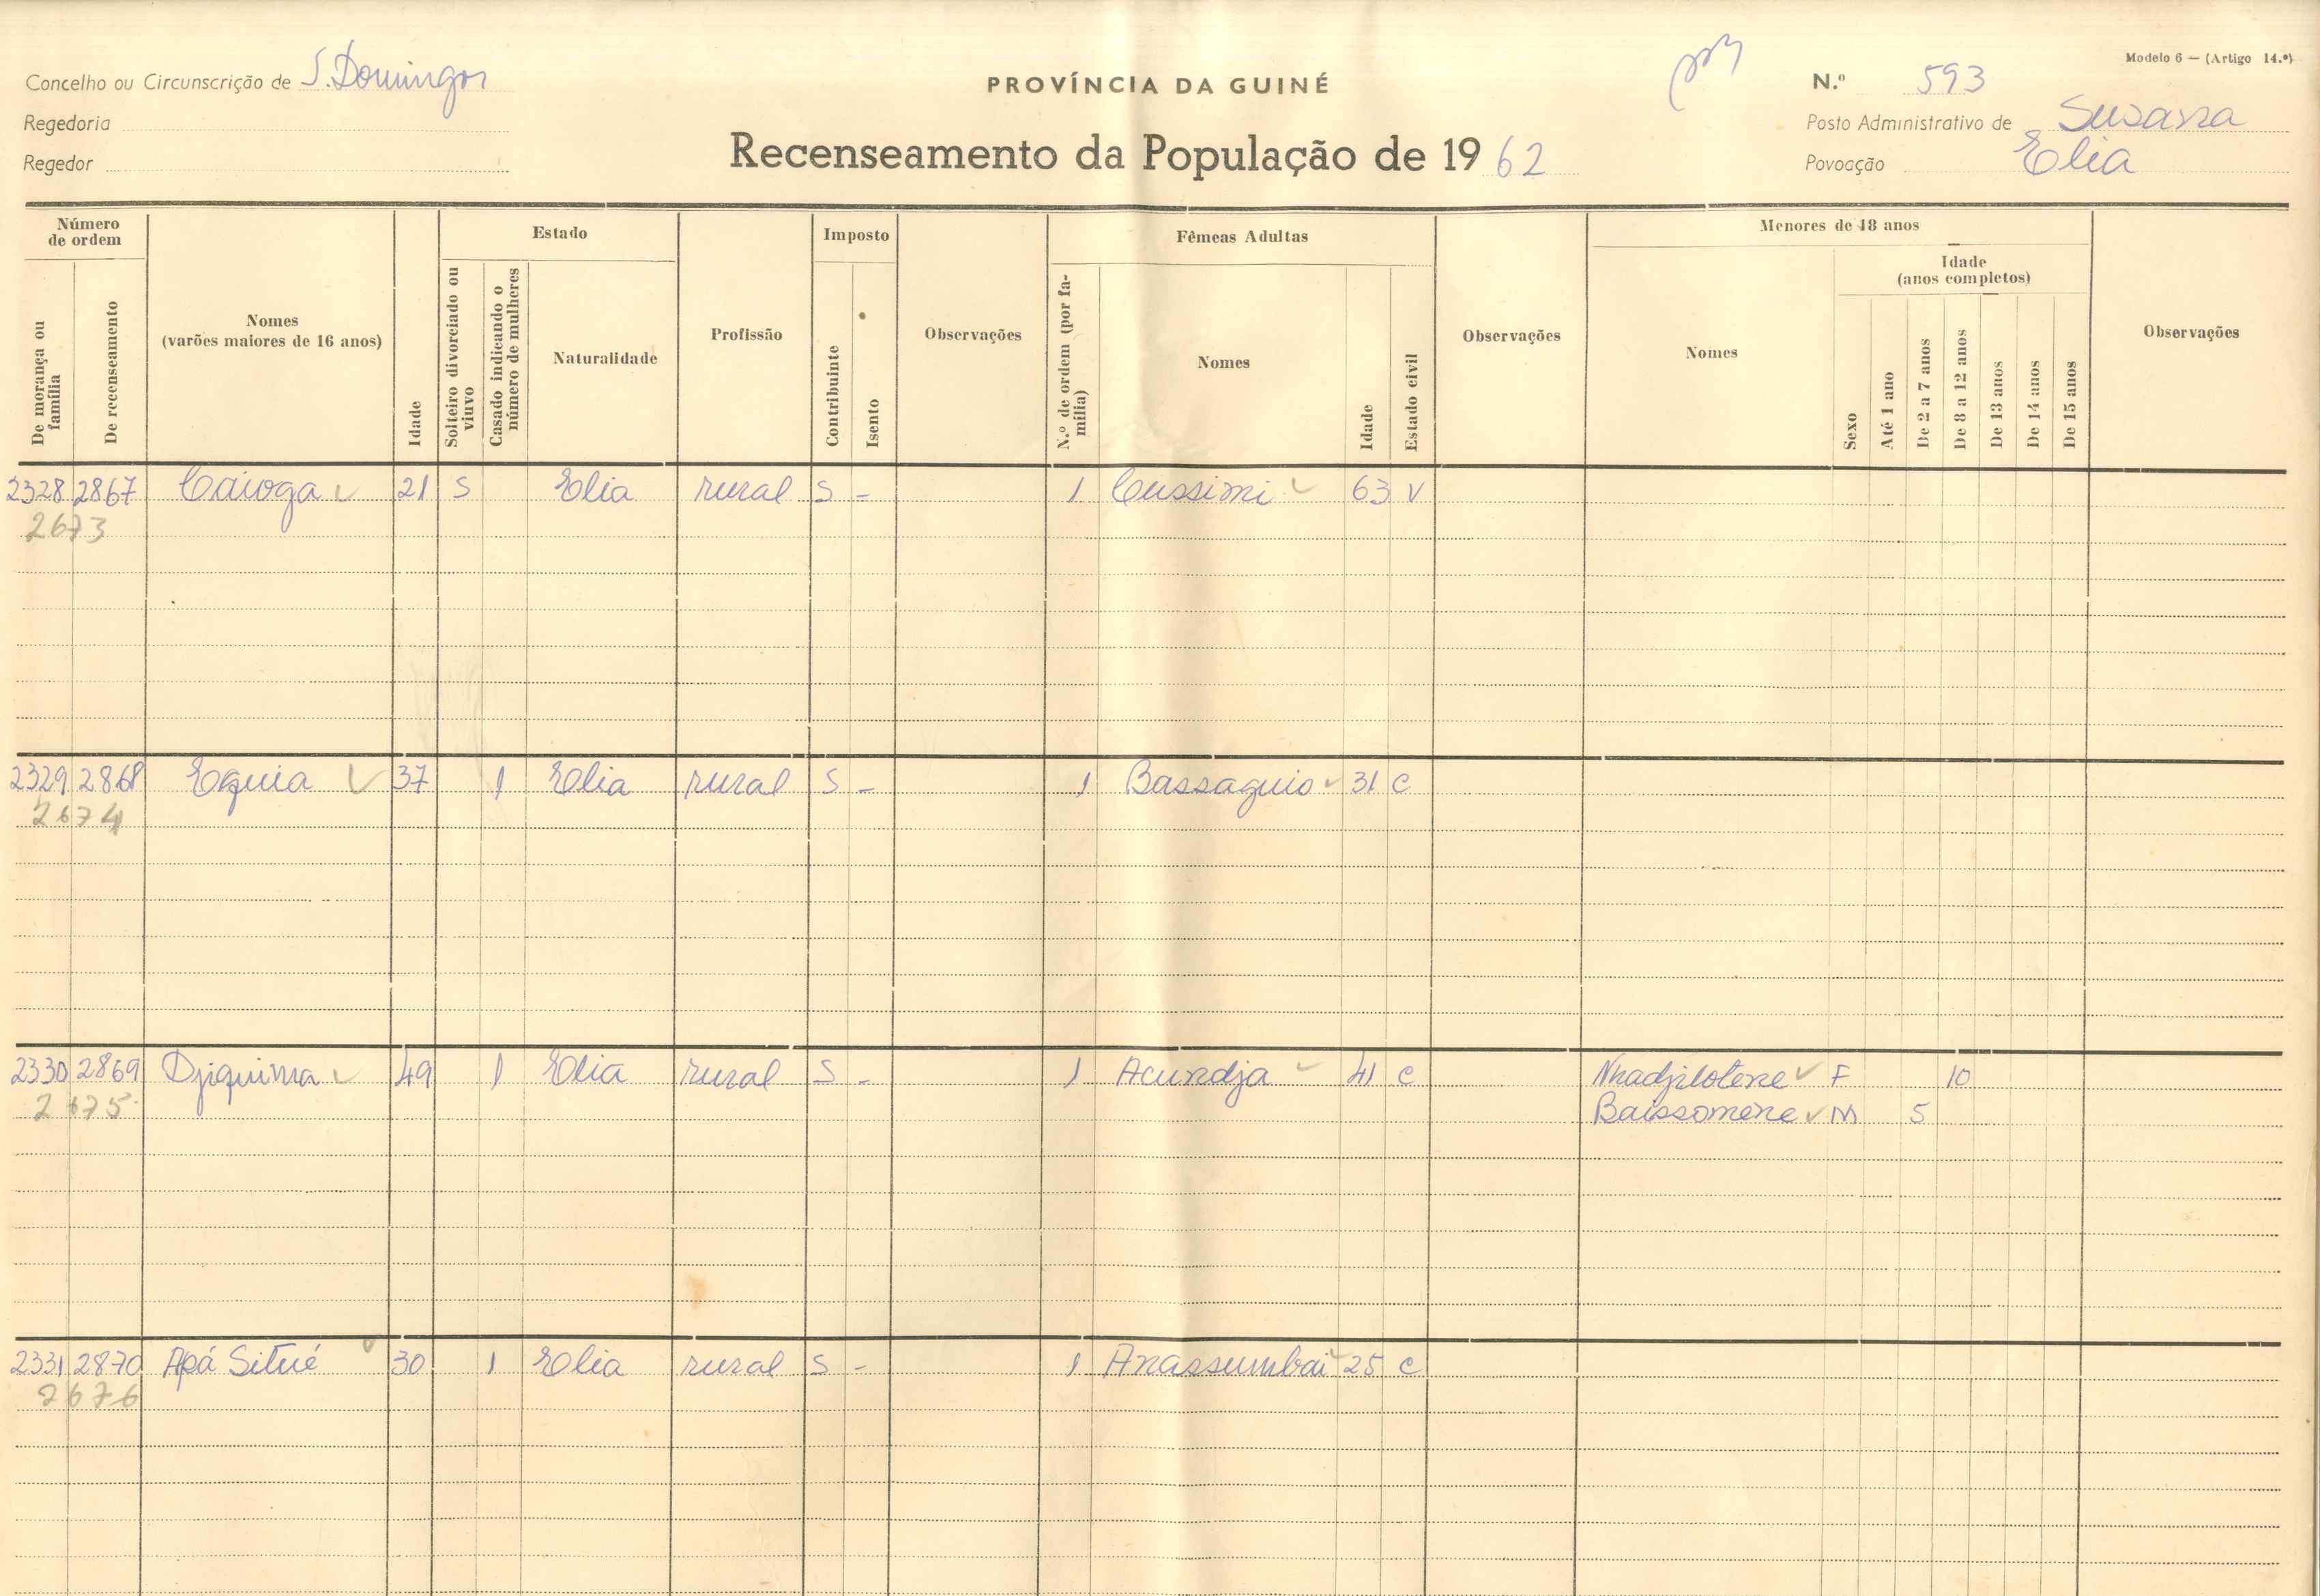 Modelo 6 — (Artigo 14.º)
Concelho ou Circunscrição de S. Domingos
PROVÍNCIA DA GUINÉ
N.º 593
Regedoria
Posto Administrativo de Suzana
Regedor
Recenseamento da População de 1962
Povoação Elia
Número de ordem
De morança ou família
De recenseamento
Nomes
(varões maiores de 16 anos)
Idade
Estado
Solteiro divorciado ou viuvo
Casado indicando o número de mulheres
Naturalidade
Profissão
Imposto
Contribuinte
Isento
Observações
Fêmeas Adultas
N.º de ordem (por família)
Nomes
Idade
Estado civil
Observações
Menores de 18 anos
Nomes
Sexo
Idade
(anos completos)
Até 1 ano
De 2 a 7 anos
De 8 a 12 anos
De 13 anos
De 14 anos
De 15 anos
Observações
2328 2867 Caioga 21 S Elia rural S - 1 Cussimi 63 V
2673
2329 2868 Equia 37 1 Elia rural S - 1 Bassaguio 31 C
2674
2330 2869 Djiquima 49 1 Elia rural S - 1 Acundja 41 C Nhadjilotene F 10
2675 Baissomene M 5
2331 2870 Apá Situé 30 1 Elia rural S - 1 Anassumbai 25 C
2676